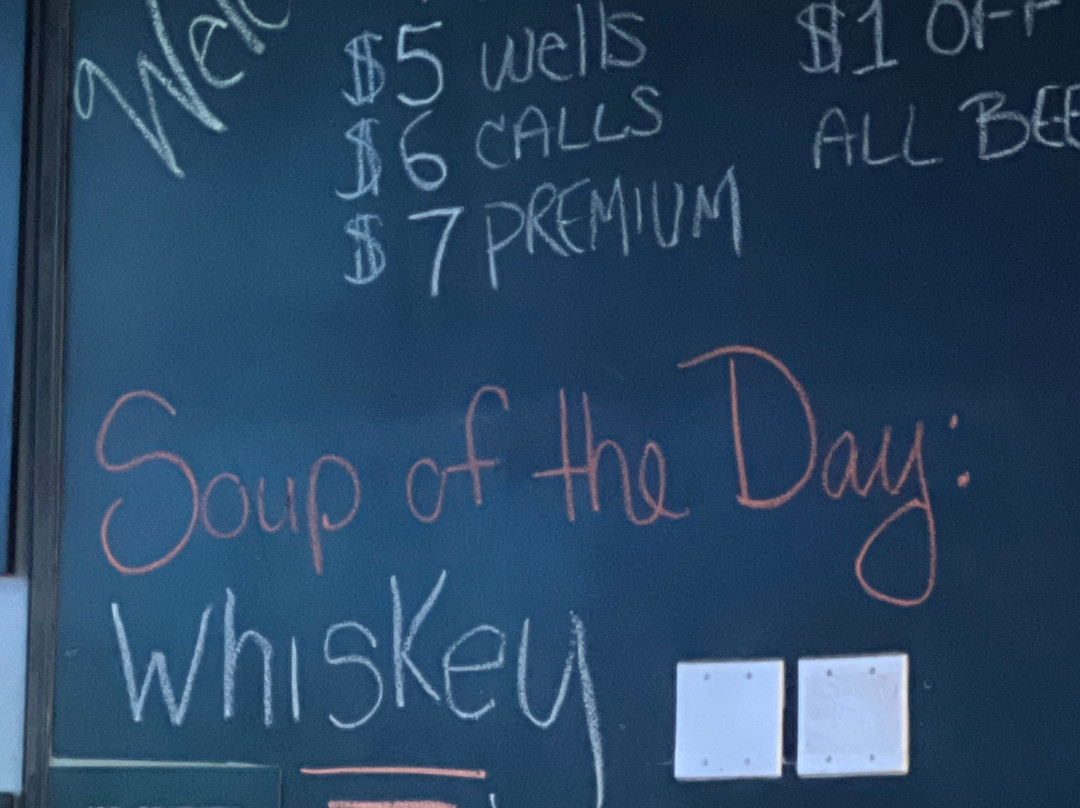 $5 wells
$6 CALLS
$7 PREMIUM
$1 OFF
ALL BEE
Soup of the Day:
Whiskey